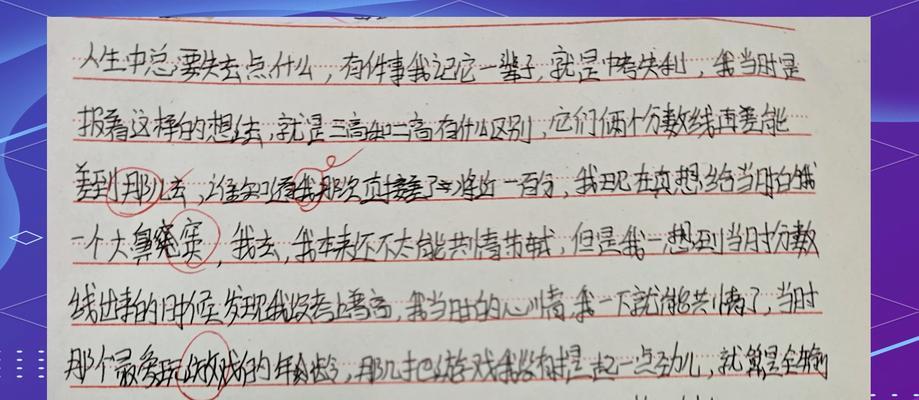 人生中总要失去点什么，有件事我记它一辈子，就是中考失利，我当时是
报着这样的想法，就是三高和二高有什么区别，它们俩个分数线再差能
差到那儿去，谁知道我那次直接差了将近一百分，我现在真想给当时的我
一个大鼻窦，我去，我本来还不太能共情苏轼，但是我一想到当时分数
线过来的时候，发现我没考上普高，我当时的心情，我一下就能共情了，当时
那个最爱玩游戏的年龄，那几把游戏我没有提起一点劲儿，就算是全输